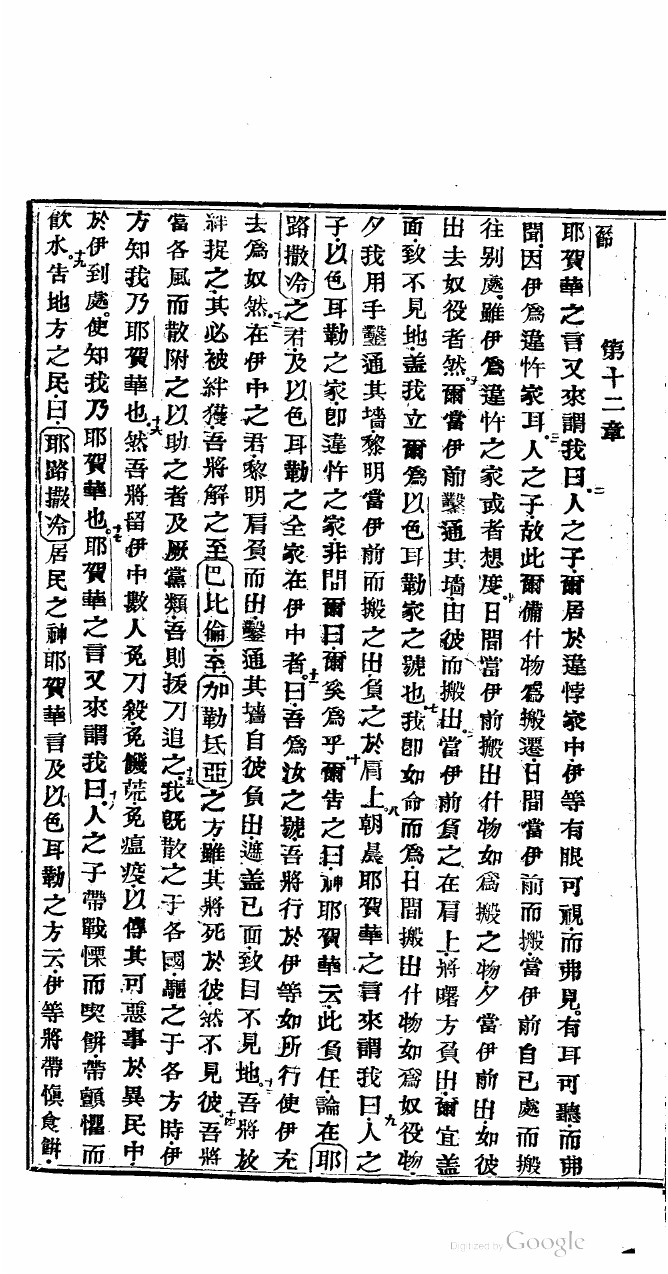 第十二章
節
耶賀華之言又來謂我曰人之子爾居於違悖家中伊等有眼可視而弗見有耳可聽而弗
聞因伊爲違忤家耳人之子故此爾備什物爲搬遷日間當伊前而搬當伊前自己處而搬
往别處雖伊爲違忤之家或者想度日間當伊前搬出什物如爲搬之物夕當伊前出如彼
出去奴役者然爾當伊前鑿通其墻由彼而搬出當伊前負之在肩上將曙方負出爾宜盖
面致不見地盖我立爾爲以色耳勒家之號也我卽如命而爲日間搬出什物如爲奴役物
夕我用手鑿通其墻黎明當伊前而搬之出負之於肩上朝晨耶賀華之言來謂我曰人之
子以色耳勒之家卽違忤之家非問爾曰爾奚爲乎爾告之曰神耶賀華云此負任論在耶
路撒冷之君及以色耳勒之全家在伊中者曰吾爲汝之號吾將行於伊等如所行使伊充
去爲奴然在伊中之君黎明肩負而出鑿通其墻自彼負出遮盖己面致目不見地吾將放
絆捉之其必被絆獲吾將解之至巴比倫至加勒坻亞之方雖其將死於彼然不見彼吾將
當各風而散附之以助之者及厥黨類吾則拔刀追之我旣散之于各國驅之于各方時伊
方知我乃耶賀華也然吾將留伊中數人免刀殺免饑荒免瘟疫以傳其可惡事於異民中
於伊到處使知我乃耶賀華也耶賀華之言又來謂我曰人之子帶戰慄而喫餅帶顫懼而
飲水告地方之民曰耶路撒冷居民之神耶賀華言及以色耳勒之方云伊等將帶愼食餅
Digitized by Google